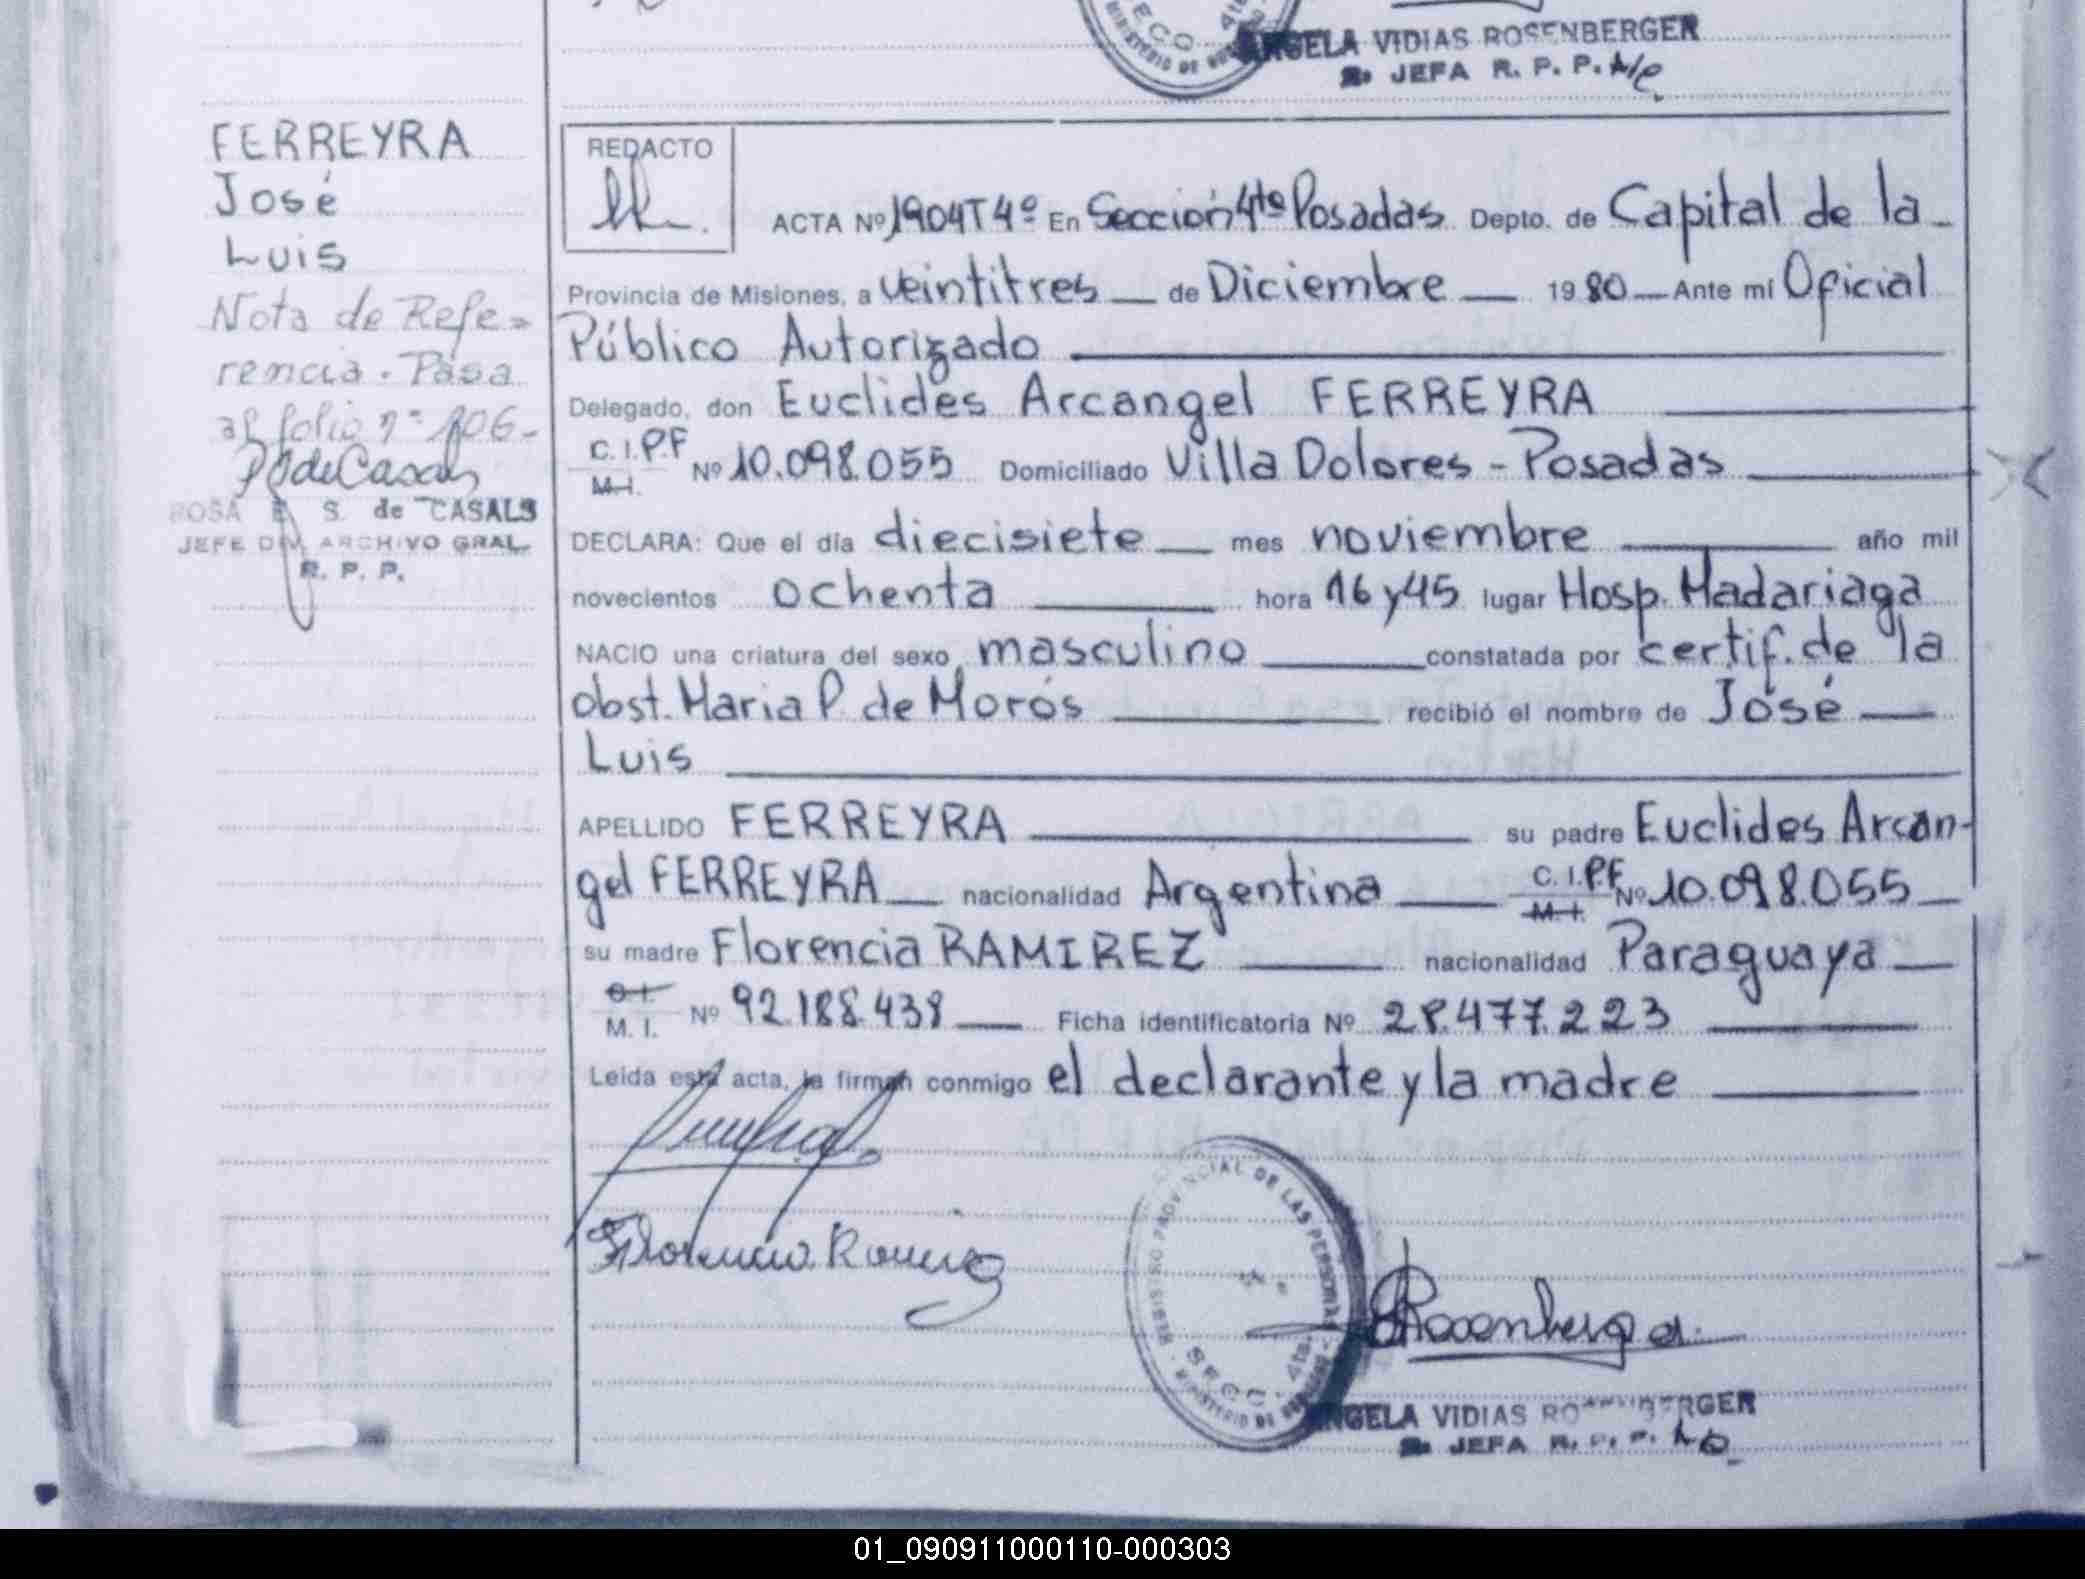 ANGELA VIDIAS ROSENBERGER
JEFA R. P. P.
FERREYRA
José
Luis
Nota de Refe=
rencia. Pasa
al folio nº 106-
ROSA E. S. de CASALS
JEFE DIV. ARCHIVO GRAL.
R. P. P.
REDACTO
ACTA Nº 1904 T 4º En Sección 4ta Posadas Depto. de Capital de la
Provincia de Misiones, a veintitres de Diciembre 1980 Ante mí Oficial
Público Autorizado
Delegado, don Euclides Arcangel FERREYRA
C. I. P.F M. I. Nº 10.098.055 Domiciliado Villa Dolores - Posadas
DECLARA: Que el día diecisiete mes noviembre año mil
novecientos ochenta hora 16 y 45 lugar Hosp. Madariaga
NACIO una criatura del sexo masculino constatada por certif. de la
obst. Maria P. de Morós recibió el nombre de José
Luis
APELLIDO FERREYRA su padre Euclides Arcan-
gel FERREYRA nacionalidad Argentina C. I. P.F. M. I. Nº 10.098.055
su madre Florencia RAMIREZ nacionalidad Paraguaya
C. I. M. I. Nº 92.188.438 Ficha identificatoria Nº 28.477.223
Leída esta acta, la firman conmigo el declarante y la madre
REGISTRO PROVINCIAL DE LAS PERSONAS
SECC. 4ta.
ANGELA VIDIAS ROSENBERGER
JEFA R. P. P.
01_090911000110-000303